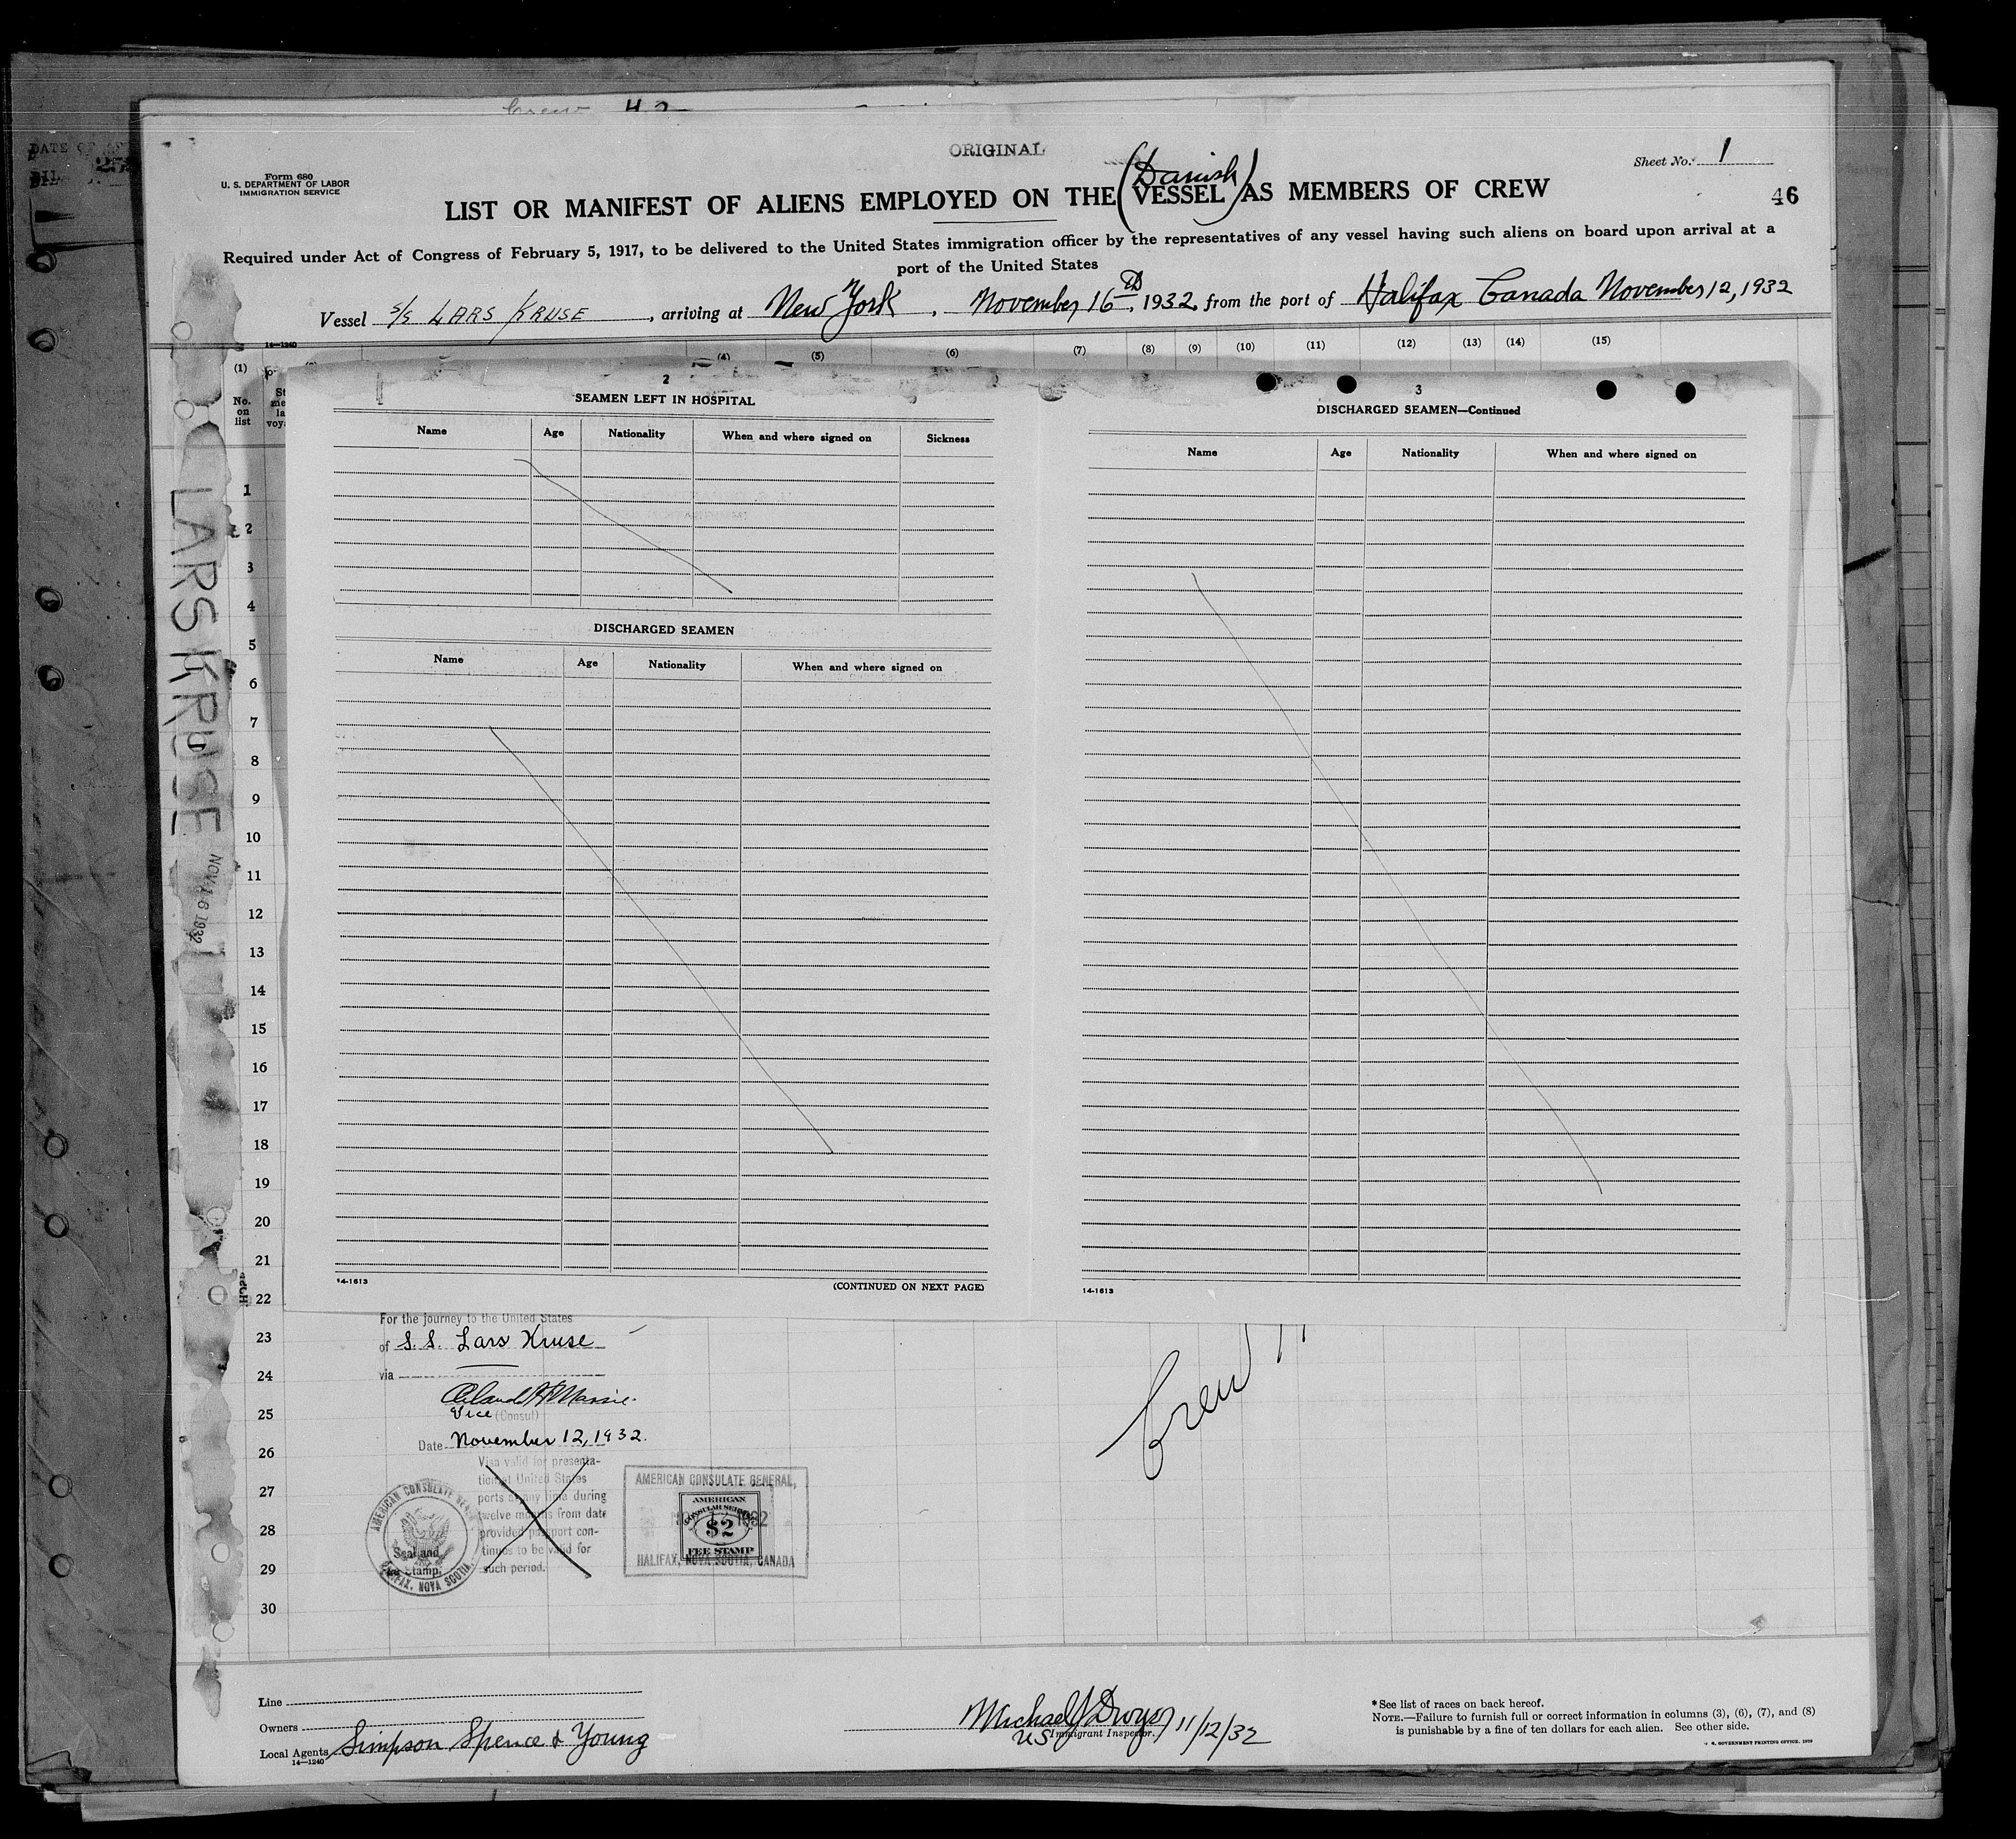 Crew
ORIGINAL
Sheet No. 1
Form 680
U. S. DEPARTMENT OF LABOR
IMMIGRATION SERVICE
(Danish)
LIST OR MANIFEST OF ALIENS EMPLOYED ON THE VESSEL AS MEMBERS OF CREW
46
Required under Act of Congress of February 5, 1917, to be delivered to the United States immigration officer by the representatives of any vessel having such aliens on board upon arrival at a
port of the United States
Vessel S/S LARS KRUSE, arriving at New York, November 16th, 1932, from the port of Halifax Canada November 12, 1932
14-1240
(1) (4) (5) (6) (7) (8) (9) (10) (11) (12) (13) (14) (15)
No.
on
list
2
SEAMEN LEFT IN HOSPITAL
Name Age Nationality When and where signed on Sickness
DISCHARGED SEAMEN
Name Age Nationality When and where signed on
14-1613
(CONTINUED ON NEXT PAGE)
3
DISCHARGED SEAMEN—Continued
Name Age Nationality When and where signed on
14-1613
LARS KRUSE
NOV 16 1932
1
2
3
4
5
6
7
8
9
10
11
12
13
14
15
16
17
18
19
20
21
22
23
24
25
26
27
28
29
30
For the journey to the United States
of S. S. Lars Kruse
via
Vice (Consul)
Date November 12, 1932.
Visa valid for presenta-
tion at United States
ports at any time during
twelve months from date
provided passport con-
tinues to be valid for
such period.
AMERICAN CONSULATE GENERAL
HALIFAX, NOVA SCOTIA
Seal and
Stamp.
AMERICAN CONSULATE GENERAL,
AMERICAN
CONSULAR SERVICE
$2
FEE STAMP
1932
HALIFAX, NOVA SCOTIA, CANADA
Crew
Line
Owners
Local Agents Simpson Spence & Young
14-1240
Michael J Dwyer 11/12/32
US Immigrant Inspector.
*See list of races on back hereof.
NOTE.—Failure to furnish full or correct information in columns (3), (6), (7), and (8)
is punishable by a fine of ten dollars for each alien. See other side.
GOVERNMENT PRINTING OFFICE